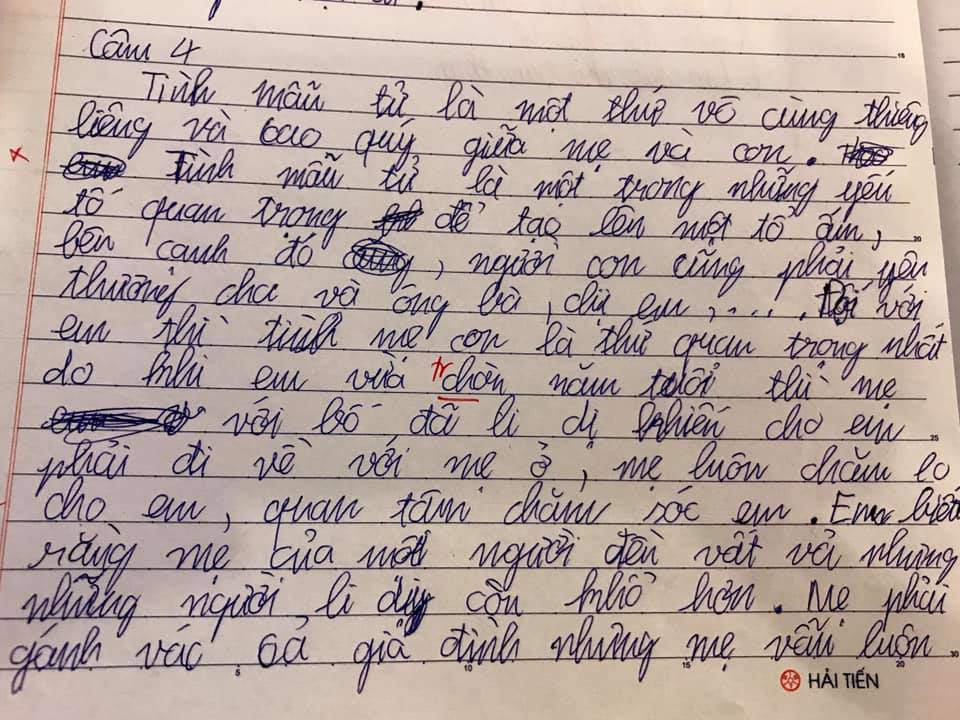 Câu 4
Tình mẫu tử là một thứ vô cùng thiêng
liêng và bao quý giữa mẹ và con.
Tình mẫu tử là một trong những yếu
tố quan trong để tạo lên một tổ ấm,
bên cạnh đó, người con cũng phải yên
thương cha và ông bà, chị em,.... Đối với
em thì tình mẹ con là thứ quan trọng nhất
do khi em vừa chòn năm tuổi thì mẹ
tr
với bố đã li dị khiến cho em
phải đi về với mẹ ở, mẹ luôn chăm lo
cho em, quan tâm chăm sóc em. Em biết
rằng mẹ của một người đều vất vả nhưng
những người li dị còn khổ hơn. Mẹ phải
gánh vác cả gia đình nhưng mẹ vẫn luôn
HẢI TIẾN
5 10 15 20
15
20
25
30